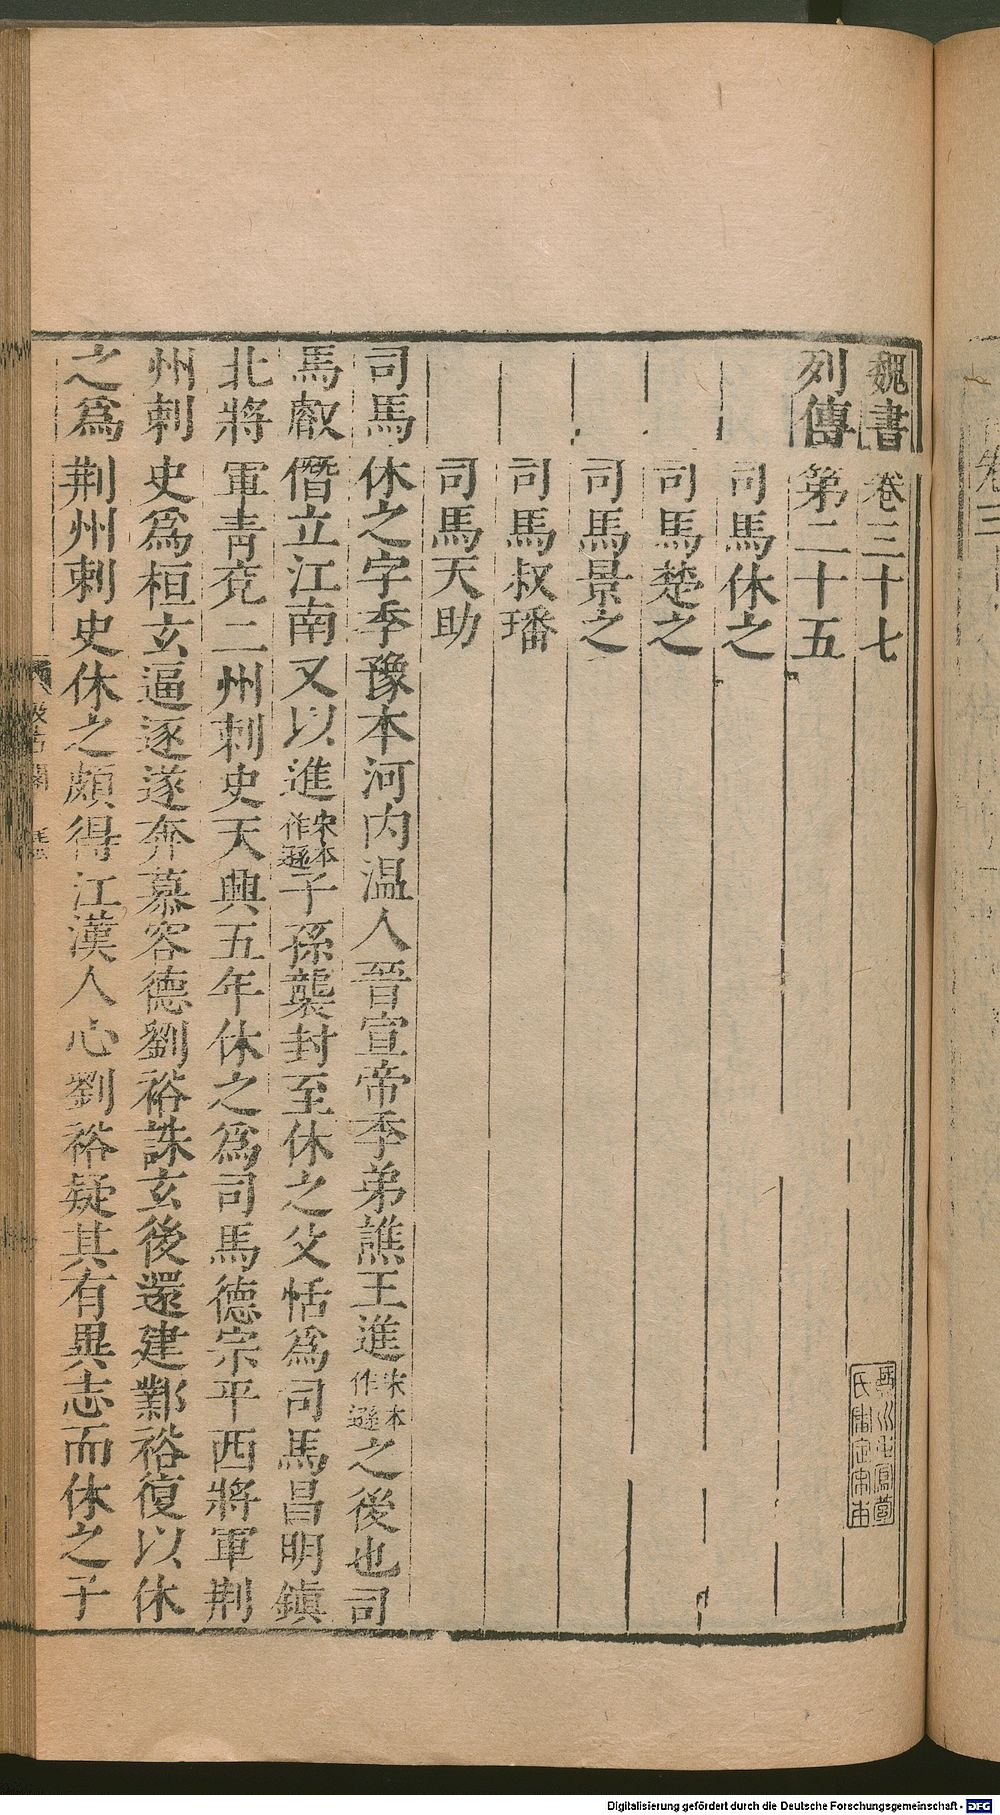 魏書卷三十七
列傳第二十五
司馬休之
司馬楚之
司馬景之
司馬叔璠
司馬天助
司馬休之字季豫本河内温人晉宣帝季弟譙王進宋本作遜之後也司
馬叡僭立江南又以進宋本作遜子孫襲封至休之父恬爲司馬昌明鎮
北將軍青兗二州刺史天興五年休之爲司馬德宗平西將軍荆
州刺史爲桓玄逼逐遂奔慕容德劉裕誅玄後還建鄴裕復以休
之爲荆州刺史休之頗得江漢人心劉裕疑其有異志而休之子
卷三
Digitalisierung gefördert durch die Deutsche Forschungsgemeinschaft - DFG